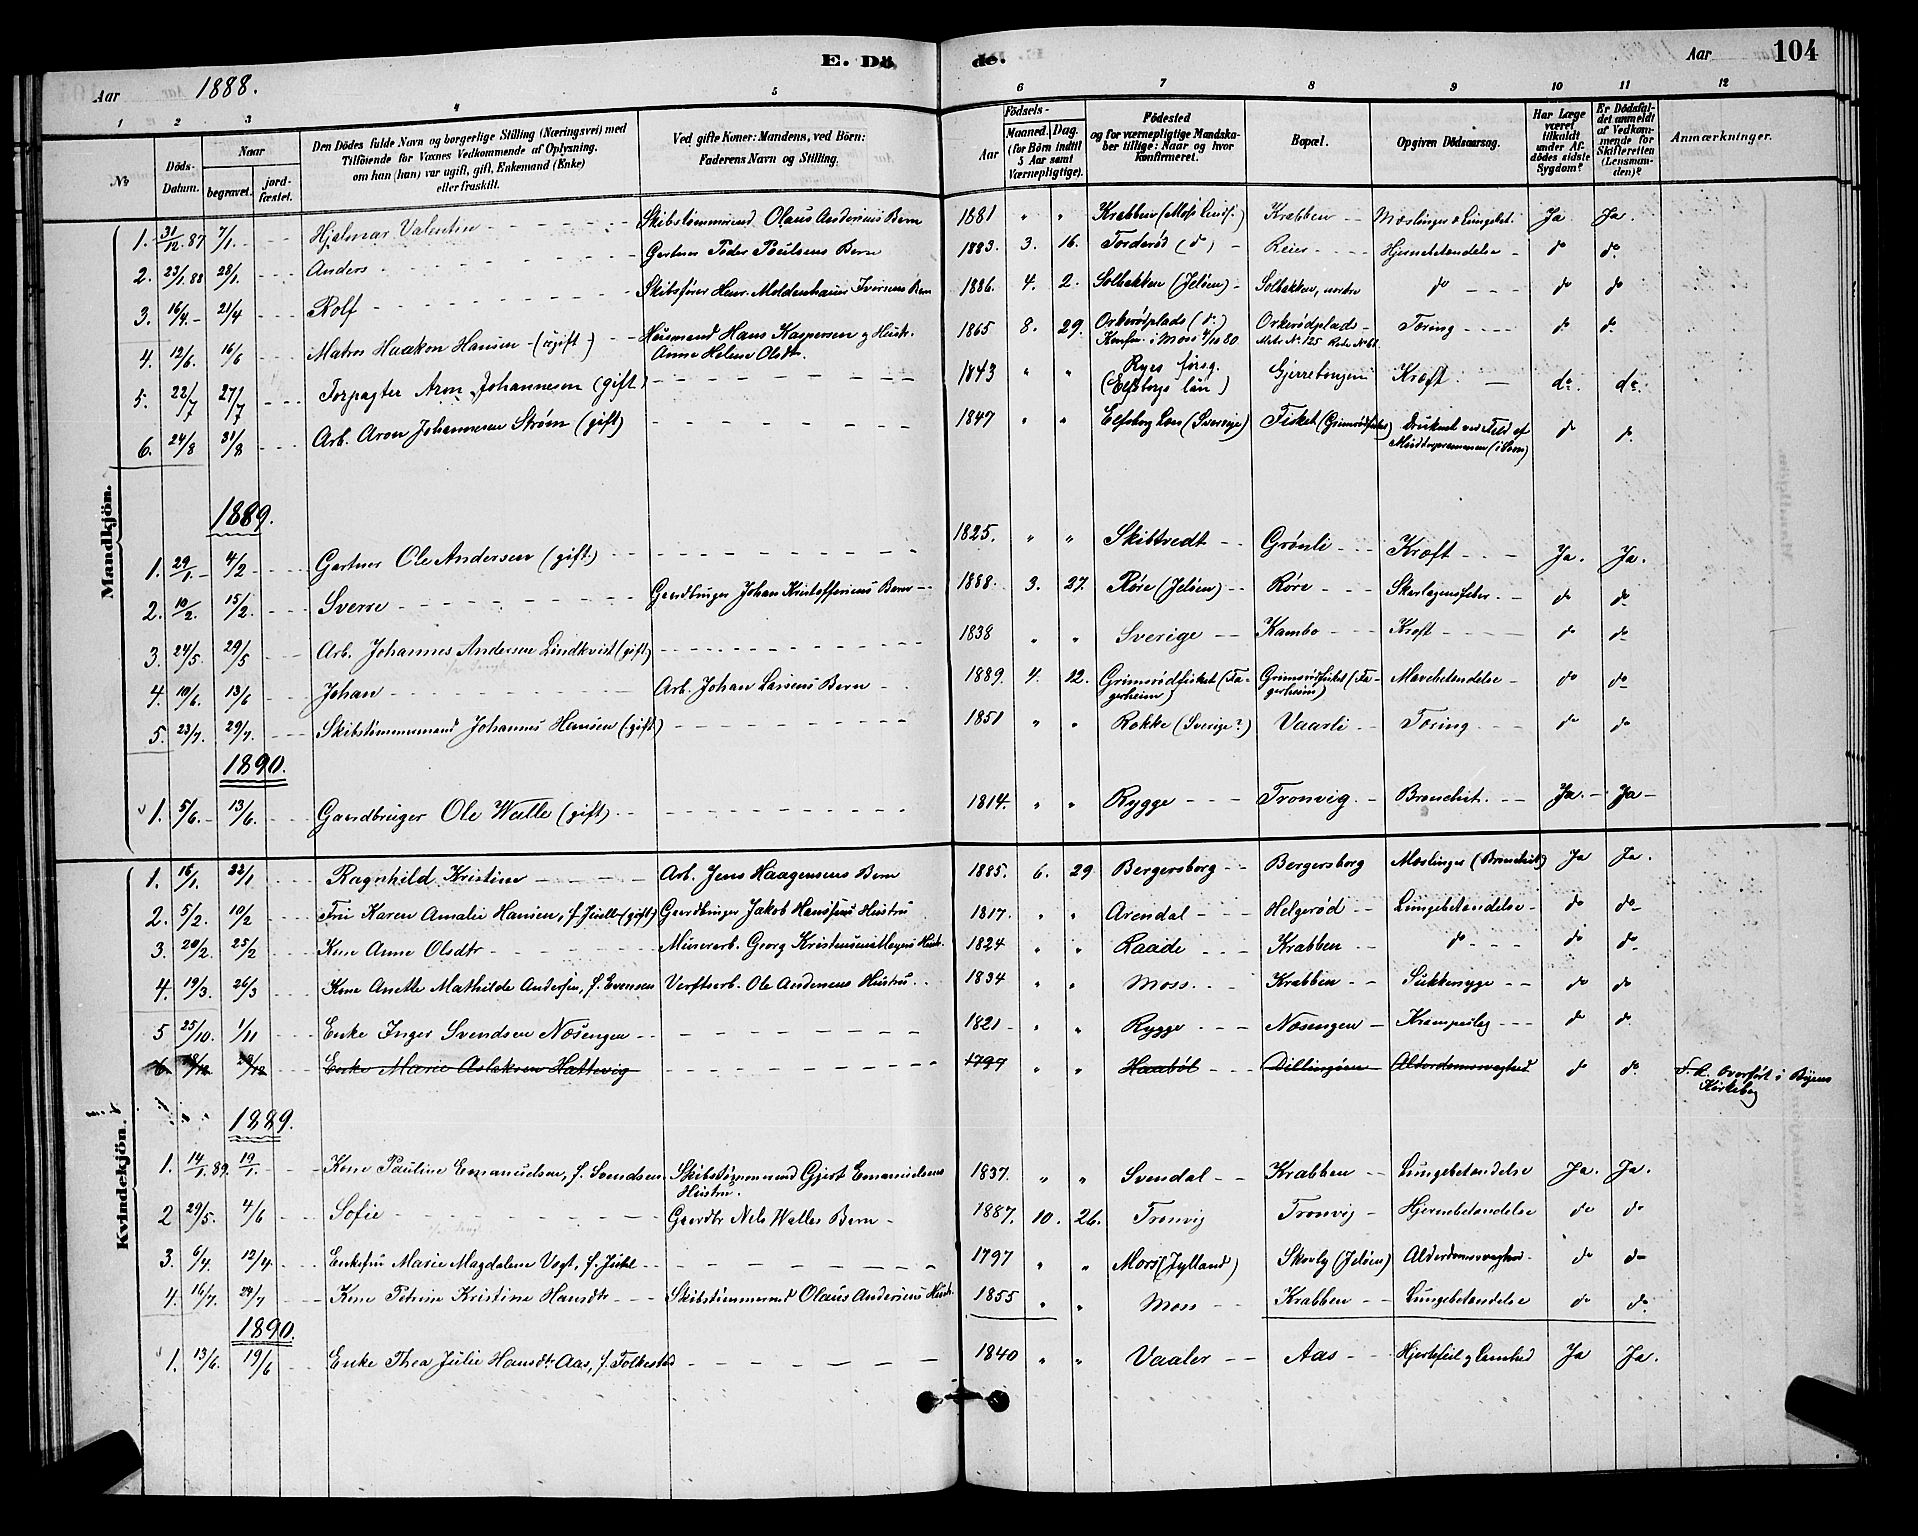 E. Döde.
Aar 1888.
Aar 104
1 2 3 4 5 6 7 8 9 10 11 12
No
Döds-Datum.
Naar
begravet.
jordfæstet.
Den Dödes fulde Navn og borgerlige Stilling (Næringsvei) med
Tilföiende for Voxnes Vedkommende af Oplysning,
om han (hun) var ugift, gift, Enkemand (Enke)
eller fraskilt.
Ved gifte Koner: Mandens, ved Börn:
Faderens Navn og Stilling.
Födsels-
Aar
Maaned. Dag.
(for Börn indtil
5 Aar samt
Værnepligtige).
Födested
og for værnepligtige Mandskaber tillige: Naar og hvor
konfirmeret.
Bopæl.
Opgiven Dödsaarsag.
Har Læge
været
tilkaldt
under Afdödes sidste
Sygdom?
Er Dödsfaldet anmeldt
af Vedkommende for
Skifteretten
(Lensmanden)?
Anmærkninger.
Mandkjön.
1. 31/12 87 7/1 Hjalmar Valentin Skibstömmermd Olaus Andersens Barn 1881 " " Krabben Krabben Mæslinger & Lungebet. Ja Ja.
2. 23/1 88 28/1 Anders Gartner Peder Poulsens Barn 1883. 3. 16. Torderød (do) Reier Hjernebetændelse do do
3. 16/4 21/4 Rolf Skibsfører Henr. Moldenhauer Iversens Barn 1886. 4. 2. Solbakken (Jeløen) Solbakken, nordre do do do
4. 12/6 16/6 Matros Haakon Hansen (ugift) Husmand Hans Kaspersen og Hustr. Anne Helene Olsdtr. 1865 8. 29. Orkerødplads (do) Konfm. i Moss 4/10 80 Orkerødplads Tæring do do
5. 22/7 27/7 Forpagter Aron Johannesen (gift) 1843 " " Ryes forsg. (Elfsborgs län) Kræft do do
6. 24/8 31/8 Arb. Aron Johannesen Strøm (gift) 1847 " " Elfsborg Len (Sverige) Fisket (Grimsrødfisket) Druknet ved Fald af do do
1889.
1. 29/1 4/2 Gartner Ole Andersen (gift.) 1825. " " Skibtvedt Grønli Kræft Ja. Ja.
2. 10/2 15/2 Sverre Gaardbruger Johan Kristoffersens Barn 1888. 3. 27. Røre (Jeløen) Røre Skarlagensfeber do do
3. 24/5 29/5 Arb. Johannes Andersen Lindkvist (gift) 1838 " " Sverige Kambo Kræft do do
4. 10/6 13/6 Johan Arb. Johan Larsens Barn 1889. 4. 22. Grimsrødfisket (Fagerheim) Grimsrødfisket (Fagerheim) Mavebetændelse do do
5. 23/7 29/7 Skibstömmermand Johannes Hansen (gift) 1851 " " Rokke (Sverige?) Vaarli Tæring do do
1890.
1. 5/6 13/6 Gaardbruger Ole Walle (gift) 1814. " " Rygge Tronvig Bronchit. Ja Ja
Kvindekjön.
1. 16/1 22/1 Ragnhild Kristine Arb. Jens Haagensens Barn 1885. 6. 29 Bergersborg Bergersborg Mæslinger (Bronchit) Ja Ja.
2. 5/2 10/2 Fru Karen Amalie Hansen, f. Juell (gift) Gaardbruger Jakob Hansens Hustru 1817. " " Arendal Helgerød Lungebetændelse do do
3. 20/2 25/2 Kone Anne Olsdtr Murerarb. Georg Kristensen Hustr. 1824 " " Raade Krabben do do do
4. 19/3 26/3 Kone Anette Mathilde Andersen, f. Evensen Verftsarb. Ole Andersens Hustru 1834 " " Moss Krabben Sukkersyge do do
5 25/10 1/11 Enke Inger Svendsen Næsengen 1821 " " Rygge Næsengen Krampeslag do do
6. 18/12 Enke Marie Aslaksen Hattevig 1797 " " Haabøl Dillingøen Alderdomssvaghed do do overført i Byens Kirkebog
1889.
1. 14/1 89. 19/1 Kone Pauline Emanuelsen, f. Svendsen Skibstømmermand Gjert Emanuelsens Hustru. 1837. " " Svendal Krabben Lungebetændelse Ja. Ja.
2 29/5 4/6 Sofie Gaardbr Nils Walles Barn 1887. 10. 26. Tronvig Tronvig Hjernebetændelse do do
3. 6/4 12/4 Enkefru Marie Magdalene Vogt, f. Juhl 1797 " " Mors (Jylland) Skovly (Jeløen) Alderdomssvaghed do do
4. 16/7 24/7 Kone Petrine Kristine Hansdtr Skibstömmermd Olaus Andersens Hustr. 1855 " " Moss Krabben Lungebetændelse do do
1890.
1. 13/6 19/6 Enke Thea Julie Hansdtr Aas, f. Folkestad 1840 " " Vaaler Aas Hjertefeil og Lamhed Ja Ja.